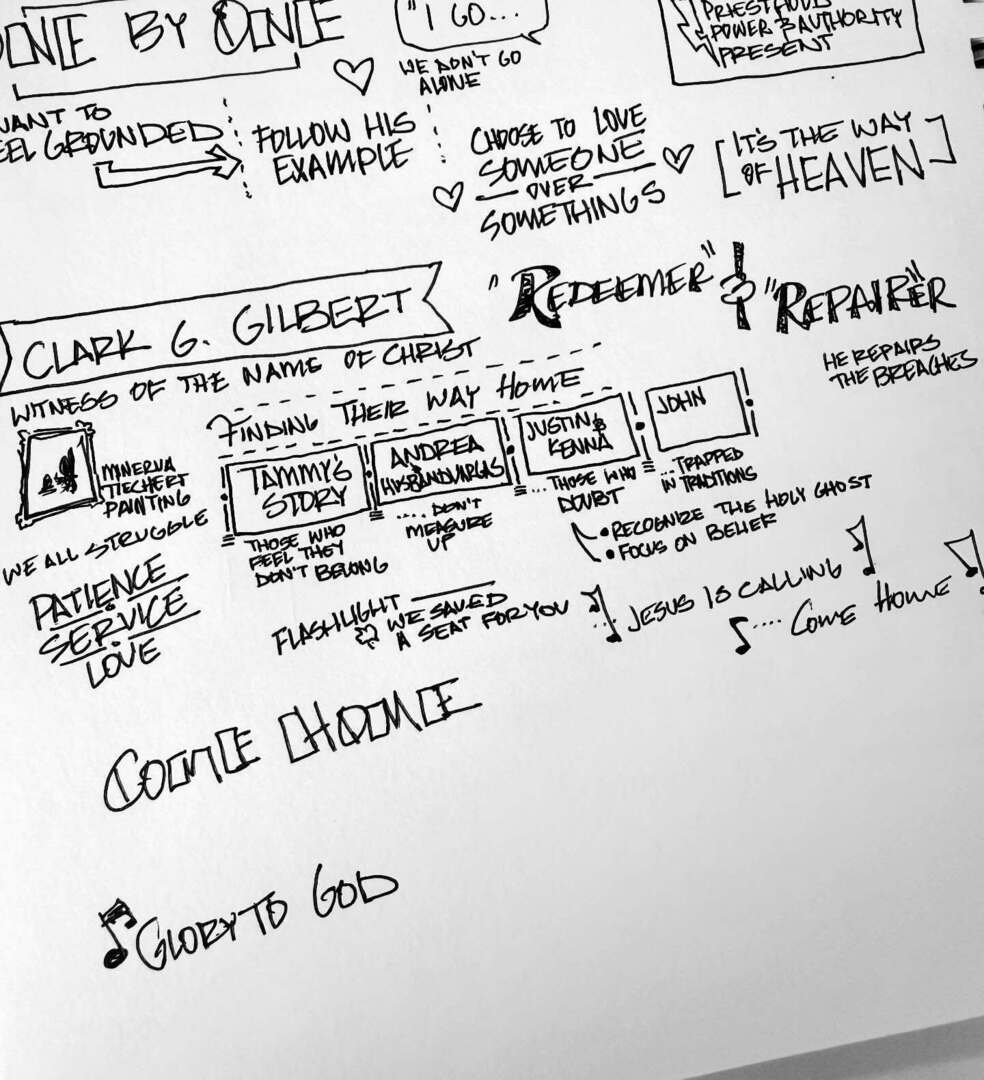 ONE BY ONE
"I GO...
WE DON'T GO
ALONE
PRIESTHOOD
POWER & AUTHORITY
PRESENT
WANT TO
FEEL GROUNDED
FOLLOW HIS
EXAMPLE
CHOOSE TO LOVE
SOMEONE
OVER
SOMETHINGS
IT'S THE WAY
OF HEAVEN
CLARK G. GILBERT
"REDEEMER" & "REPAIRER"
HE REPAIRS
THE BREACHES
WITNESS OF THE NAME OF CHRIST
MINERVA
TIECHERT
PAINTING
WE ALL STRUGGLE
PATIENCE
SERVICE
LOVE
FINDING THEIR WAY HOME
TAMMY'S
STORY
THOSE WHO
FEEL THEY
DON'T BELONG
ANDREA
HUSBAND VARGAS
.... DON'T
MEASURE
UP
JUSTIN &
KENNA
... THOSE WHO
DOUBT
JOHN
... TRAPPED
IN TRADITIONS
• RECOGNIZE THE HOLY GHOST
• FOCUS ON BELIEF
FLASHLIGHT
WE SAVED
A SEAT FOR YOU
JESUS IS CALLING
.... COME HOME
COME HOME
GLORY TO GOD